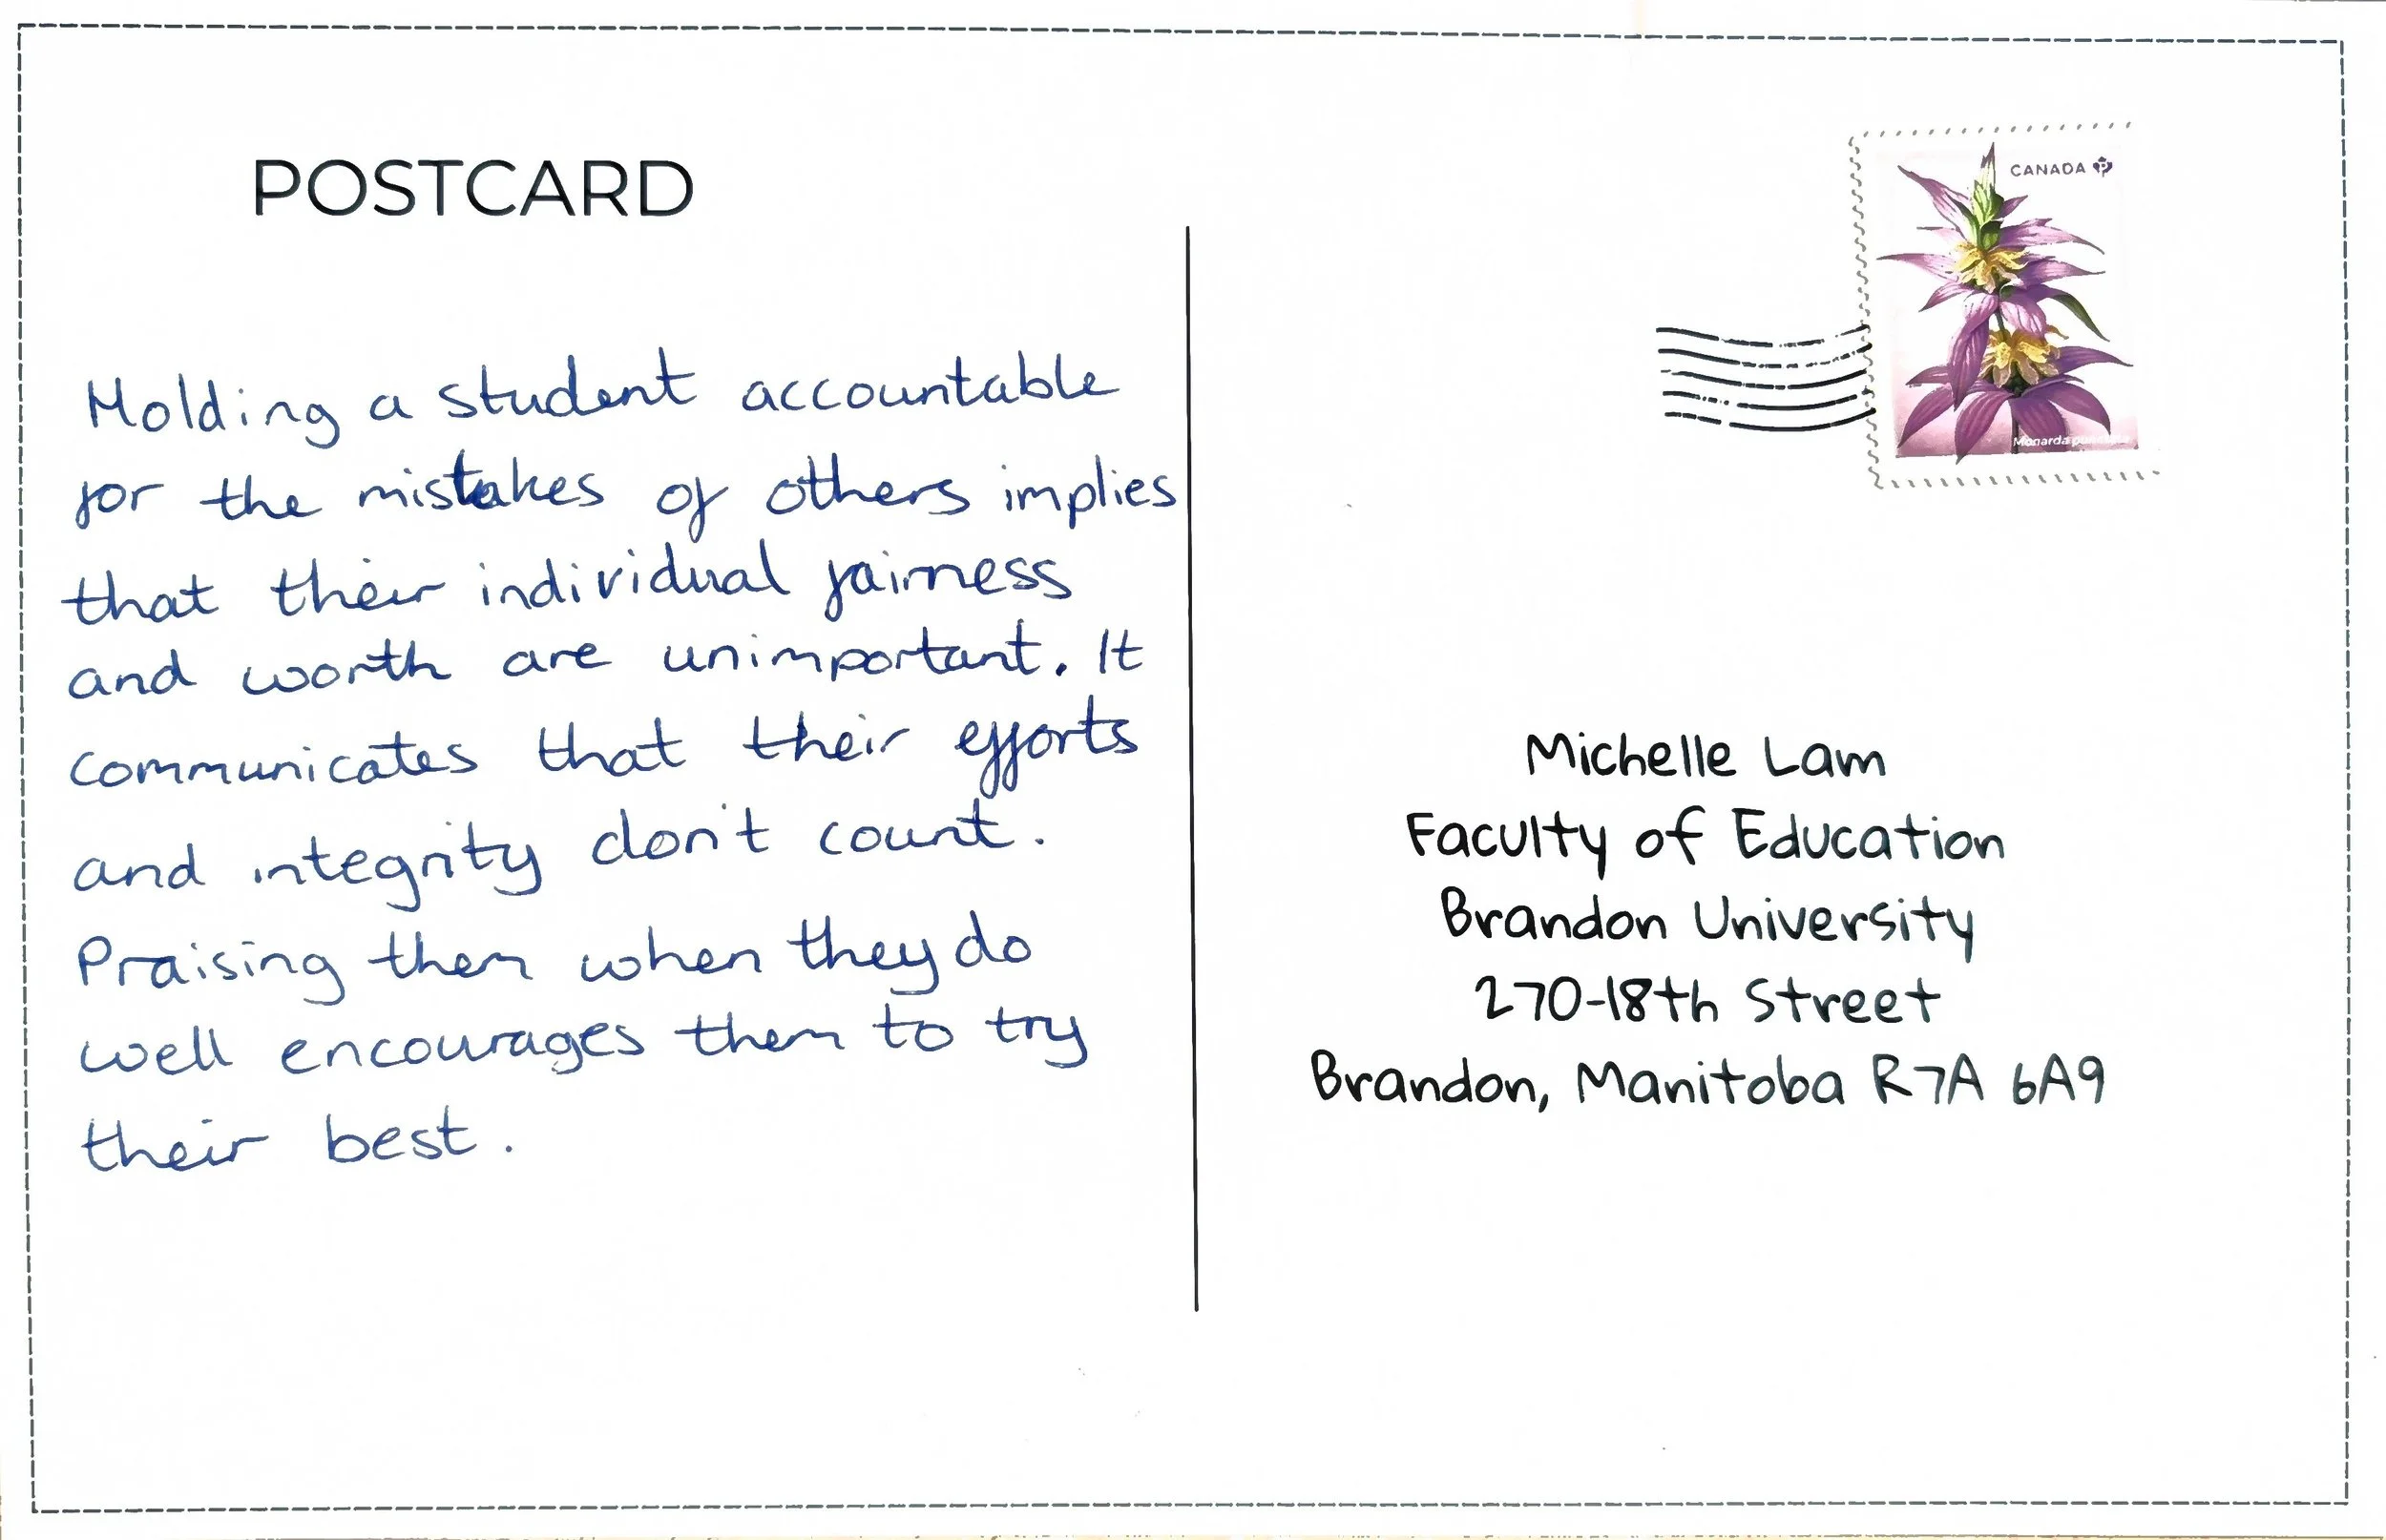 POSTCARD
Holding a student accountable
for the mistakes of others implies
that their individual fairness
and worth are unimportant. It
communicates that their efforts
and integrity don't count.
Praising them when they do
well encourages them to try
their best.
CANADA P
Monarda punctata
Michelle Lam
Faculty of Education
Brandon University
270-18th Street
Brandon, Manitoba R7A 6A9